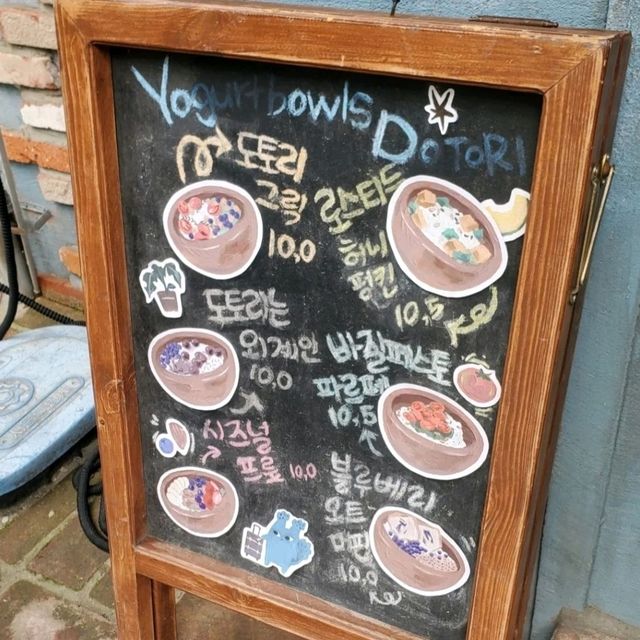 Yogurt bowls
DOTORI
도토리
그릭
10.0
로스티드
허니
펌킨
10.5
도토리는
외계인
10.0
바질페스토
파르페
10.5
시즈널
프룻 10.0
블루베리
오트
머핀
10.0